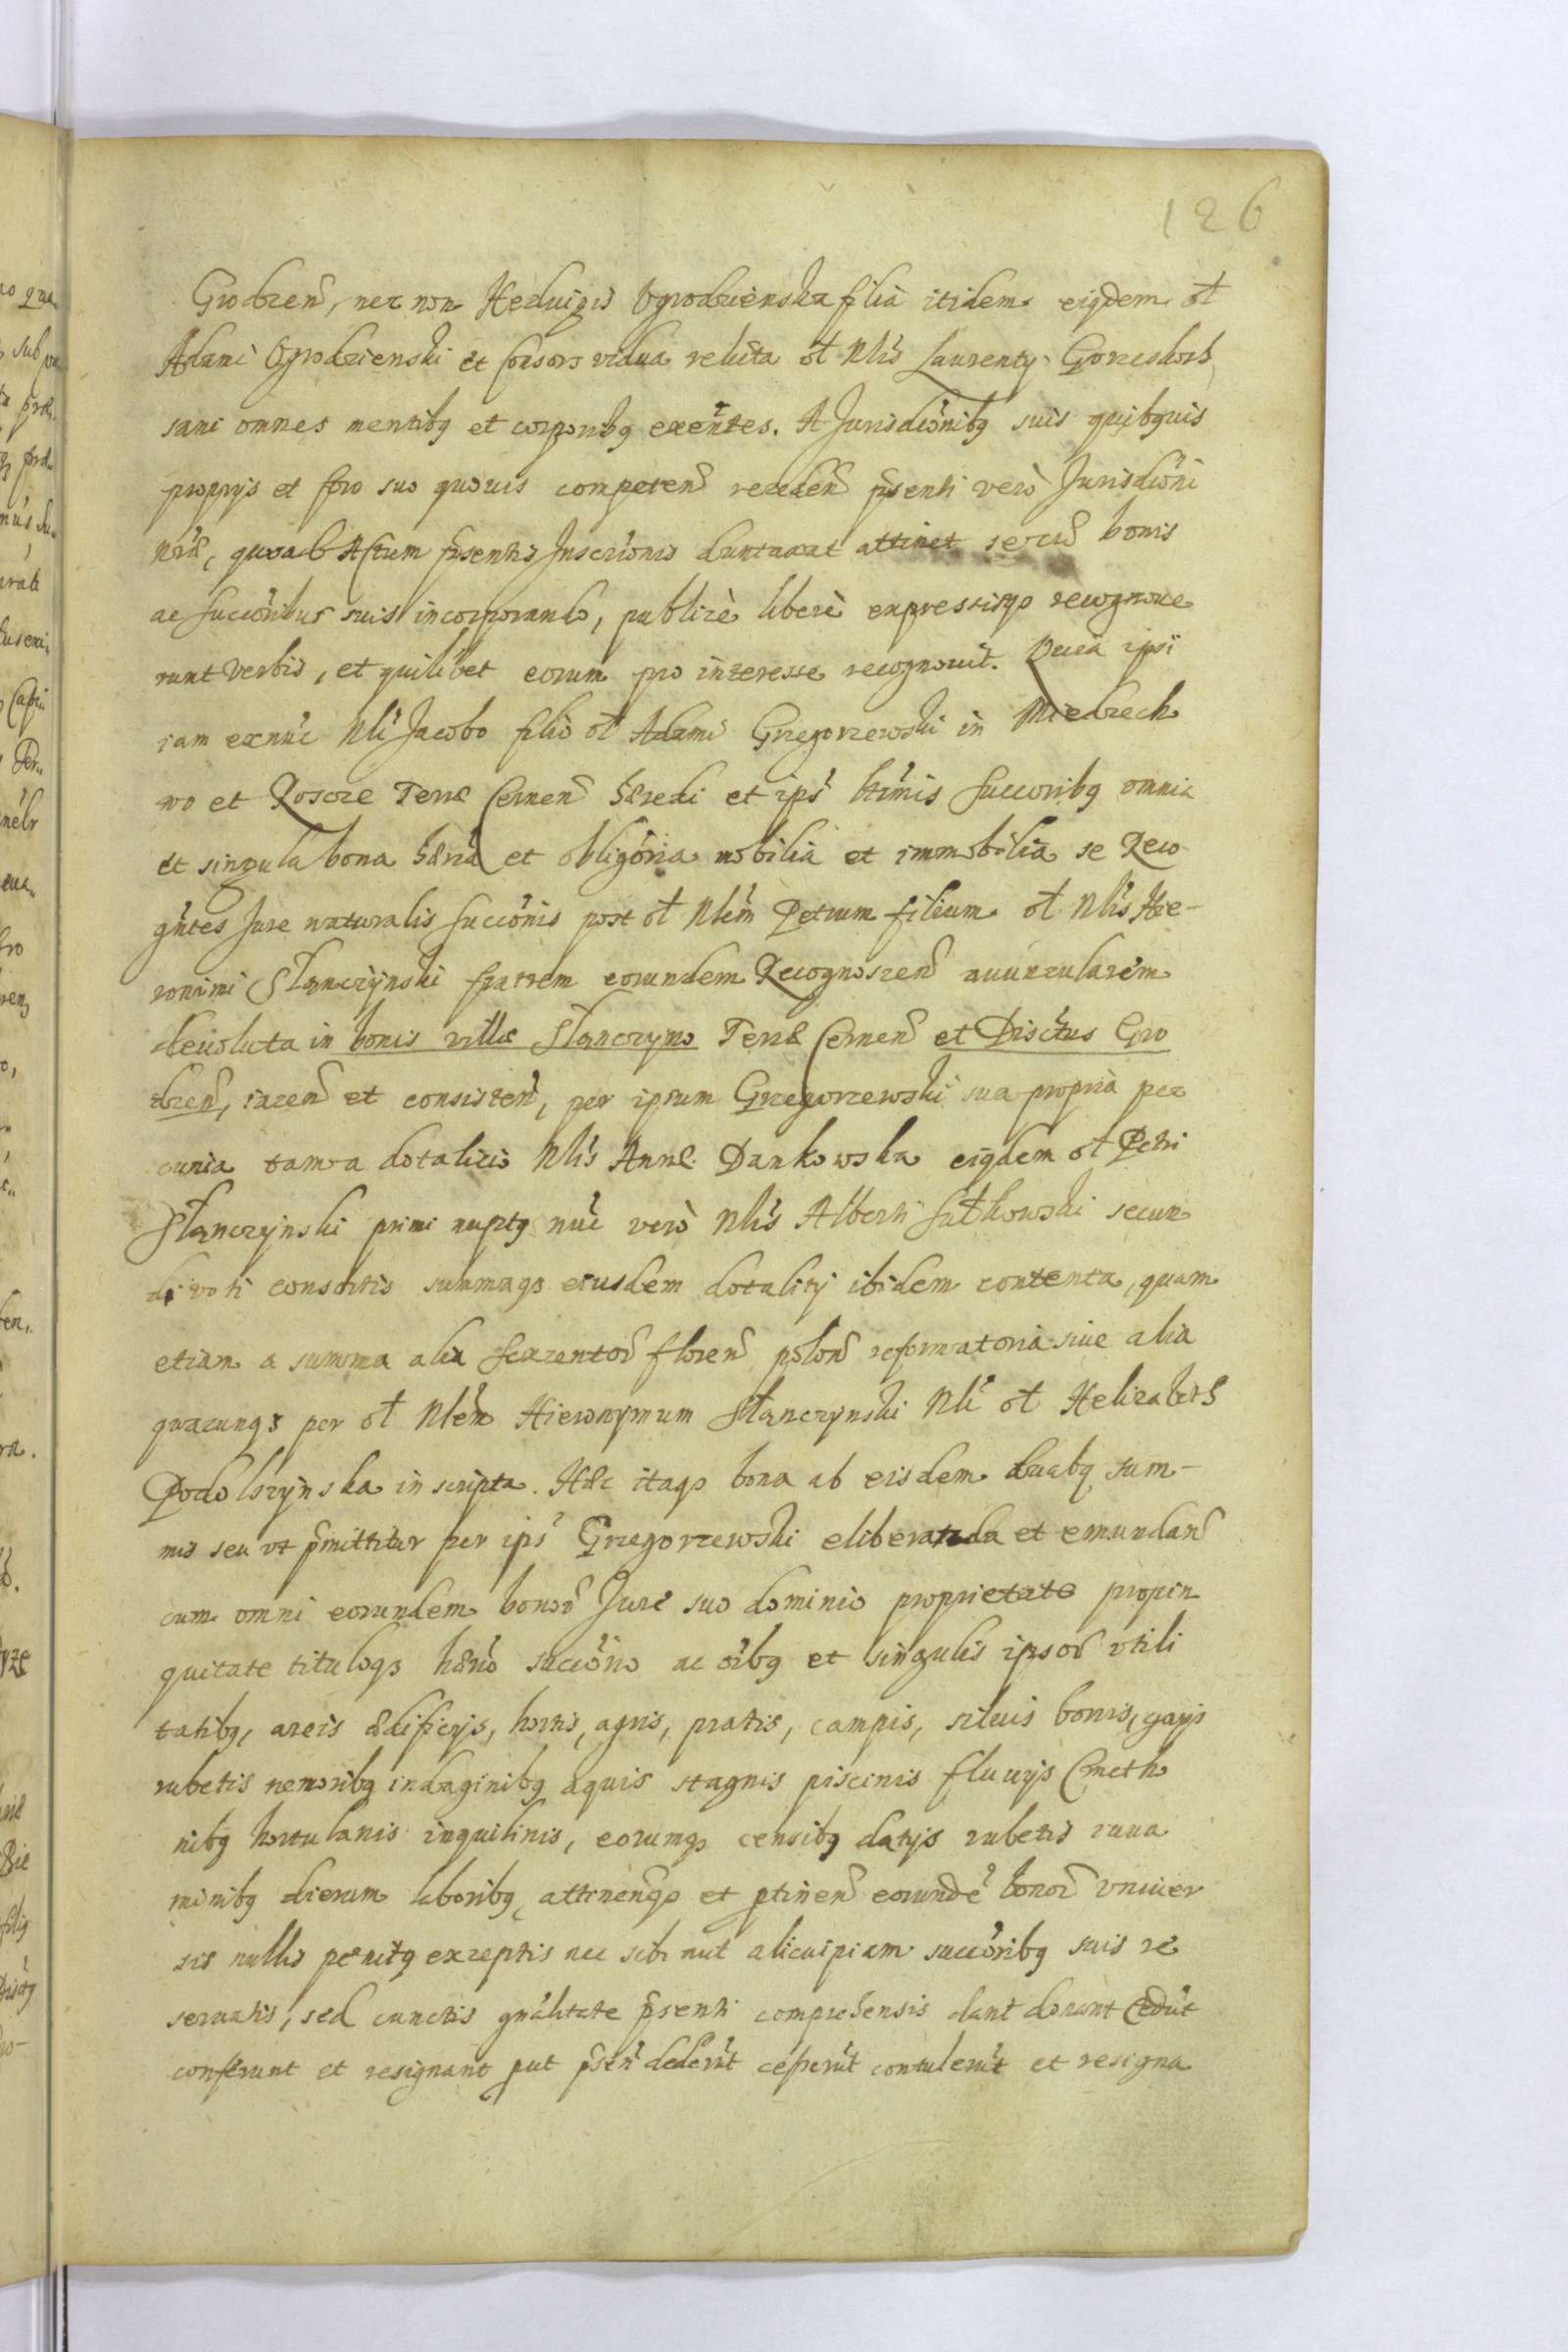 126
Grodzen, nec non Heduigis Ogrodzienska filia itidem eiqdem ol
Adami Ogrodzienski et Consors vidua relicta ol Nlis Laurentij Gorcskors
sani omnes mentibq et corporibq exentes. A Jurisdionibq suis quibquis
proprijs et foro suo quouis competen receden psenti vero Jurisdioni
nræ, quoad Actum psentis Inscriōnis duntaxat attinet se cu bonis
ac succōribus suis incorporando, publice libere expressisqɜ recognoue
runt verbis, et quilibet eorum pro interesse recognouit. Quia ipsi
iam exnuc Nli Jacobo filio ol Adami Gregorzewski in Miedzech
no et Roscze Terræ Cernen hæredi et ipsˀ ltimis Succoribq omnia
et singula bona hæria et obligōria mobilia et immobilia se Reco-
gntes Jure naturalis succōnis post ol Nlem Petrum filium ol Nlis Hie-
ronimi Slanczynski fratrem eorundem Recognoscen auuncularem
deuoluta in bonis villæ Slanczyno Terræ Cernen et Disctus Gro
dzen, iacen et consisten, per ipsum Grzegorzewski sua propria pec
cunia tam a dotalicio Nlis Annæ Dankowska eiqdem ol Petri
Slanczynski primi nuptq nuc vero Nlis Alberti Sutkowski secun
di voti consortis summaqɜ eiusdem dotalitij ibidem contenta, quam
etiam a summa alia sexcentor floren polon reformatoria siue alia
quacunqɜ per ol Nlem Hieronymum Slanczynski Nli ol Helizabeth
Podolszynska inscripta. Hæc itaqɜ bona ab eisdem duabq sum-
mis seu vt pmittitur per ipsˀ Grzegorzewski eliberanda et emundan
cum omni eorundem bonor Jure suo dominio proprietate propin
quitate tituloqɜ hærio succōrio ac oibq et singulis ipsor vtili
tatibq, areis ædificijs, hortis, agris, pratis, campis, siluis borris, gajis
rubetis nemoribq indaginibq aquis stagnis piscinis fluuijs Cmetho
nibq hortulanis inquilinis, eorumqɜ censibq datijs rubetis iuua
minibq dierum laboribq, attinenqɜ et ptinen eorunde bonor vniuer
sis nullis penitq exceptis nec sibi aut alicuipiam succōribq suis re
seruatis, sed cunctis gnalitate psenti comprehensis dant donant cedut
conferunt et resignant put psen dederut cesserut contulerut et resigna